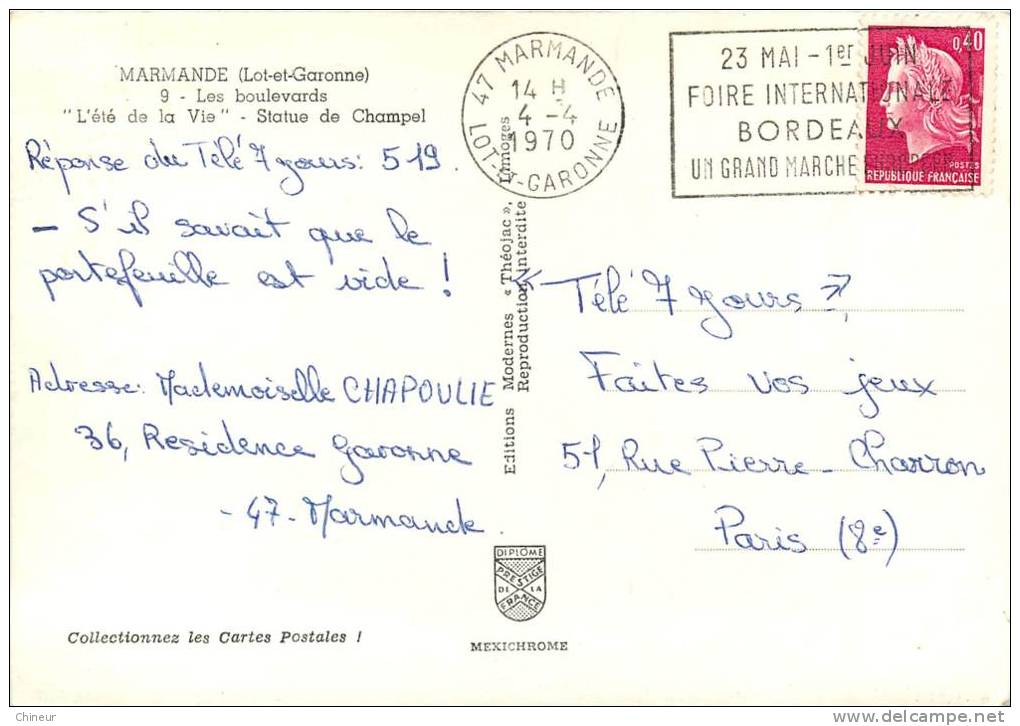 MARMANDE (Lot-et-Garonne)
9 - Les boulevards
"L'été de la Vie" - Statue de Champel
Réponse du Télé 7 jours: 519.
- S'il savait que le
portefeuille est vide !
Adresse: Mademoiselle CHAPOULIE
36, Residence Garonne
- 47 - Marmande.
Collectionnez les Cartes Postales !
47 MARMANDE
14 H
4 - 4
1970
LOT-ET-GARONNE
23 MAI - 1er JUIN
FOIRE INTERNATIONALE
BORDEAUX
UN GRAND MARCHE EUROPEEN
0,40
POSTES
REPUBLIQUE FRANÇAISE
Editions Modernes « Théojac », Limoges
Reproduction interdite
« Télé 7 jours »,
Faites vos jeux
51, Rue Pierre-Charron
Paris (8e)
DIPLOME
PRESTIGE
DE LA
FRANCE
MEXICHROME
Chineur
www.delcampe.net